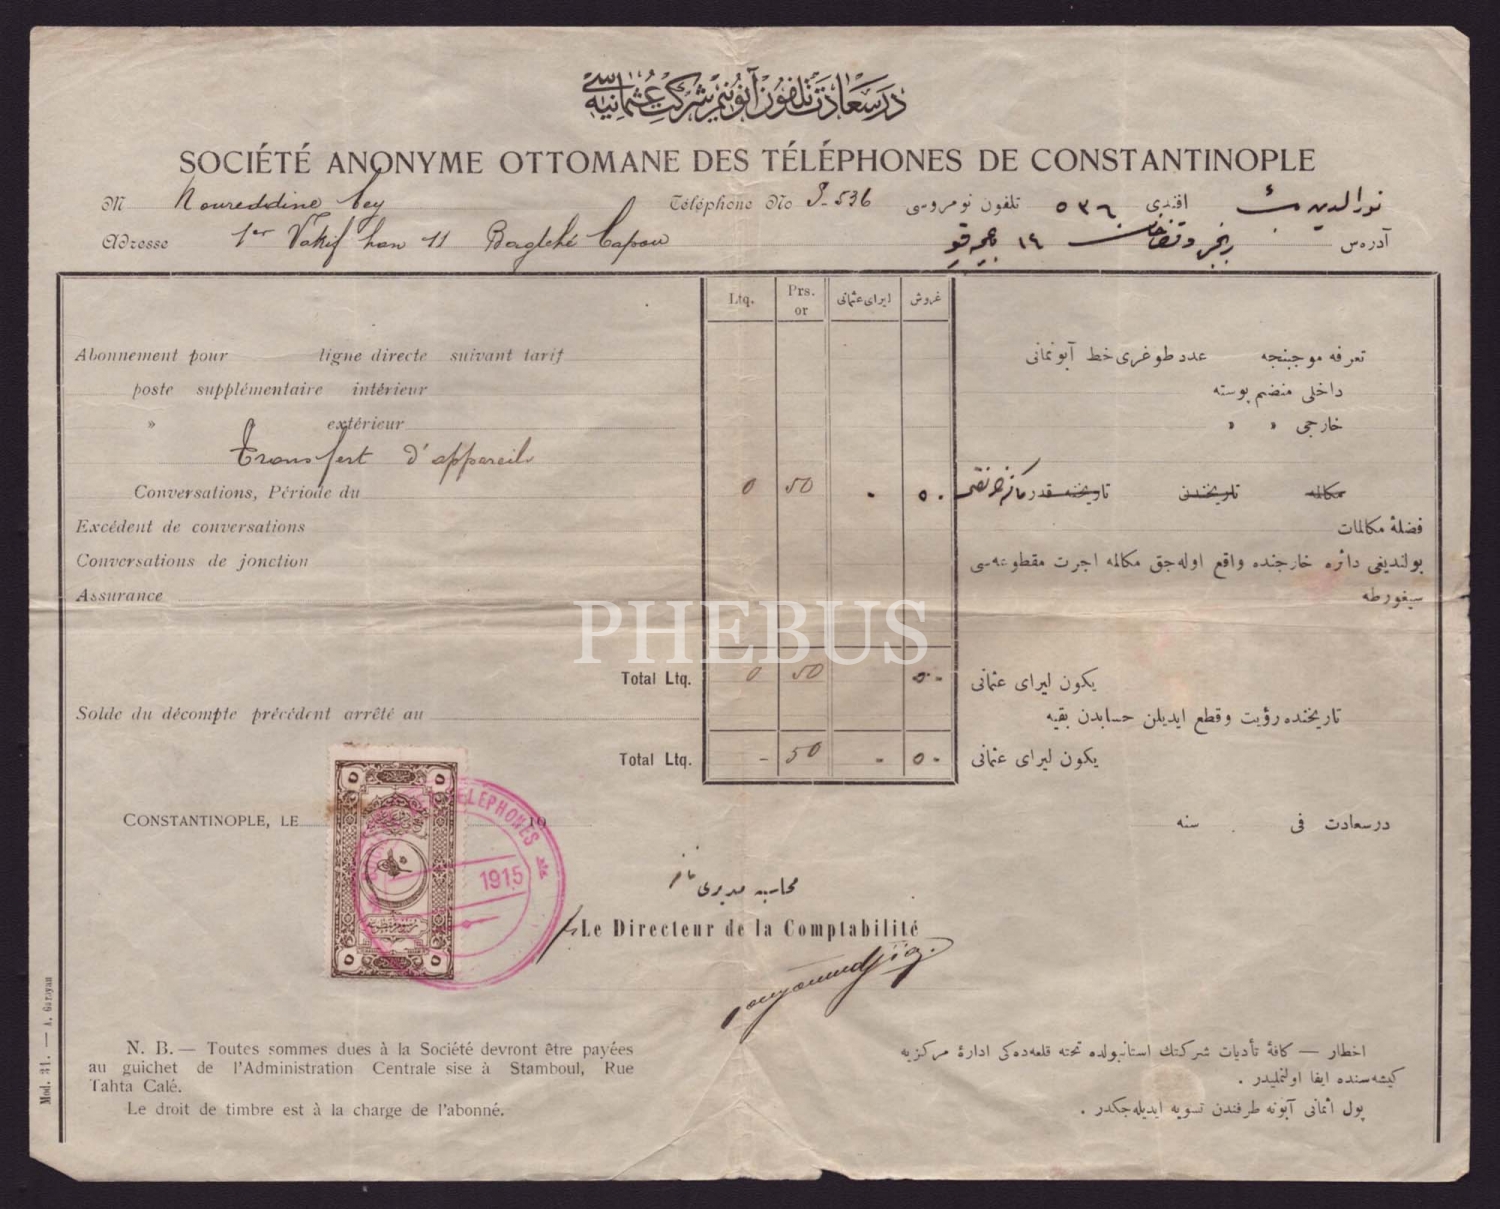 درسعادت تلفون آنونيم شركت عثمانيه‌سی
SOCIÉTÉ ANONYME OTTOMANE DES TÉLÉPHONES DE CONSTANTINOPLE
M Noureddine bey Téléphone No P-536 تلفون نومروسی ٥٣٦ افندی نورالدين بك
Adresse 1er Vakif han 11 Bagtché Capou آدرس
Ltq. Prs. or ليرای عثمانی غروش
Abonnement pour ligne directe suivant tarif تعرفه موجبنجه عدد طوغری خط آبونمانی
poste supplémentaire intérieur داخلی منضم پوسته
» extérieur خارجی » »
Transfert d'appareils
Conversations, Période du 0 50 ٠ ٥٠ مكالمه تاريخندن تاريخنه قدر
Excédent de conversations فضلهٔ مكالمات
Conversations de jonction بولنديغی دائره خارجنده واقع اوله‌جق مكالمه اجرت مقطوعه‌سی
Assurance سيغورطه
PHEBUS
Total Ltq. 0 50 ٥٠ يكون ليرای عثمانی
Solde du décompte précédent arrêté au تاريخنده رؤيت وقطع ايديلن حسابدن بقيه
Total Ltq. - 50 ٠ ٥٠ يكون ليرای عثمانی
CONSTANTINOPLE, LE 19 درسعادت فی سنه
٥ ٥
TELEPHONES
1915
٥ ٥
محاسبه مديری
Le Directeur de la Comptabilité
N. B. — Toutes sommes dues à la Société devront être payées
au guichet de l'Administration Centrale sise à Stamboul, Rue
Tahta Calé.
Le droit de timbre est à la charge de l'abonné.
اخطار — كافهٔ تأديات شركتك استانبولده تحته قلعه‌ده‌كی ادارهٔ مركزيه
كيشه‌سنده ايفا اولنمليدر .
پول اثمانی آبونه طرفندن تسويه ايديله‌جكدر .
Mod. 31. — A. Garayan